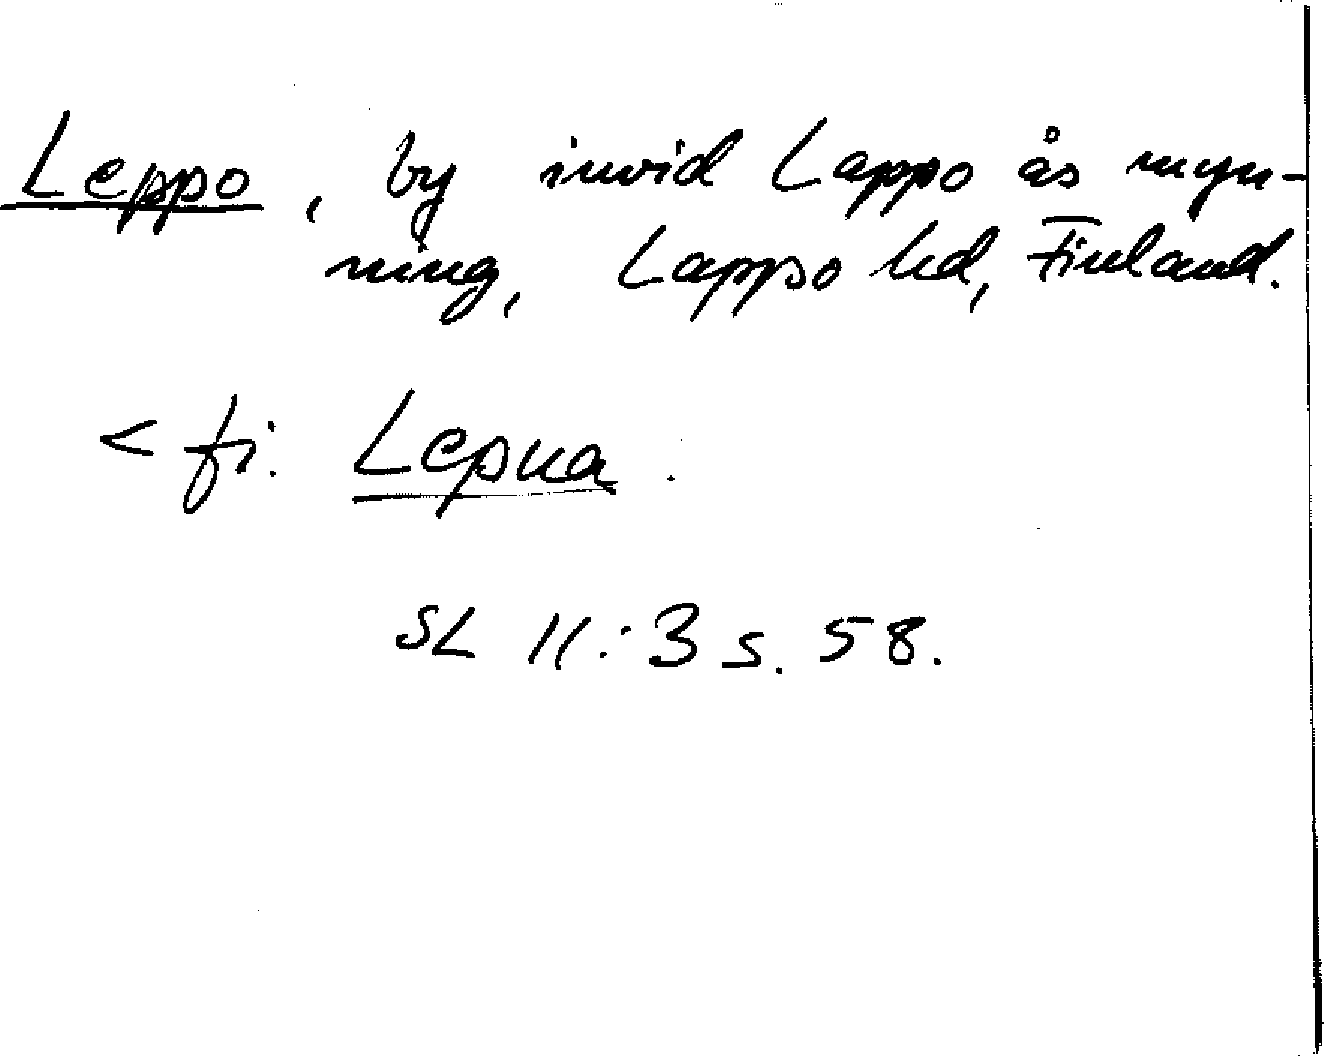 Leppo, by invid Lappo ås myn-
ning, Lappo hd, Finland.
< fi. Lepua.
SL II:3 s. 58.